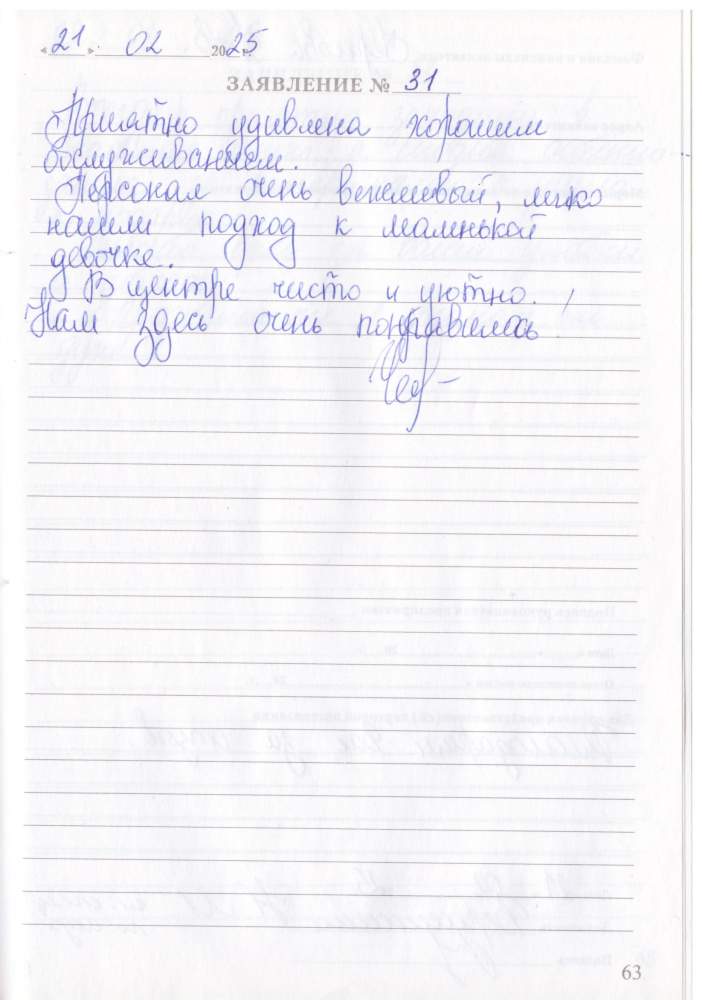 «21». 02 2025 г.
ЗАЯВЛЕНИЕ № 31
Приятно удивлена хорошим
обслуживанием.
Персонал очень вежливый, легко
нашли подход к маленькой
девочке.
В центре чисто и уютно.
Нам здесь очень понравилось!
63